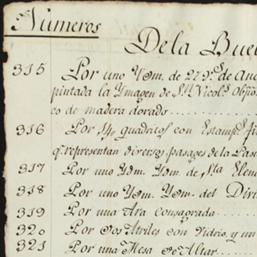 Numeros
De la Bue
315 Por uno Yom. de 27 ps. de Anc
pintada la Ymagen de Sn. Nicols. Obpo
co de madera dorado
316 Por quadritos con Estamps. fi
q. representan diversos pasages de la Pas
317 Por uno Yom. Yom. de Sta. Hele
318 Por uno Yom. Yom. del Divi
319 Por una Ara consagrada
320 Por dos Atriles con Vidrio, y un
321 Por una Mesa de Altar